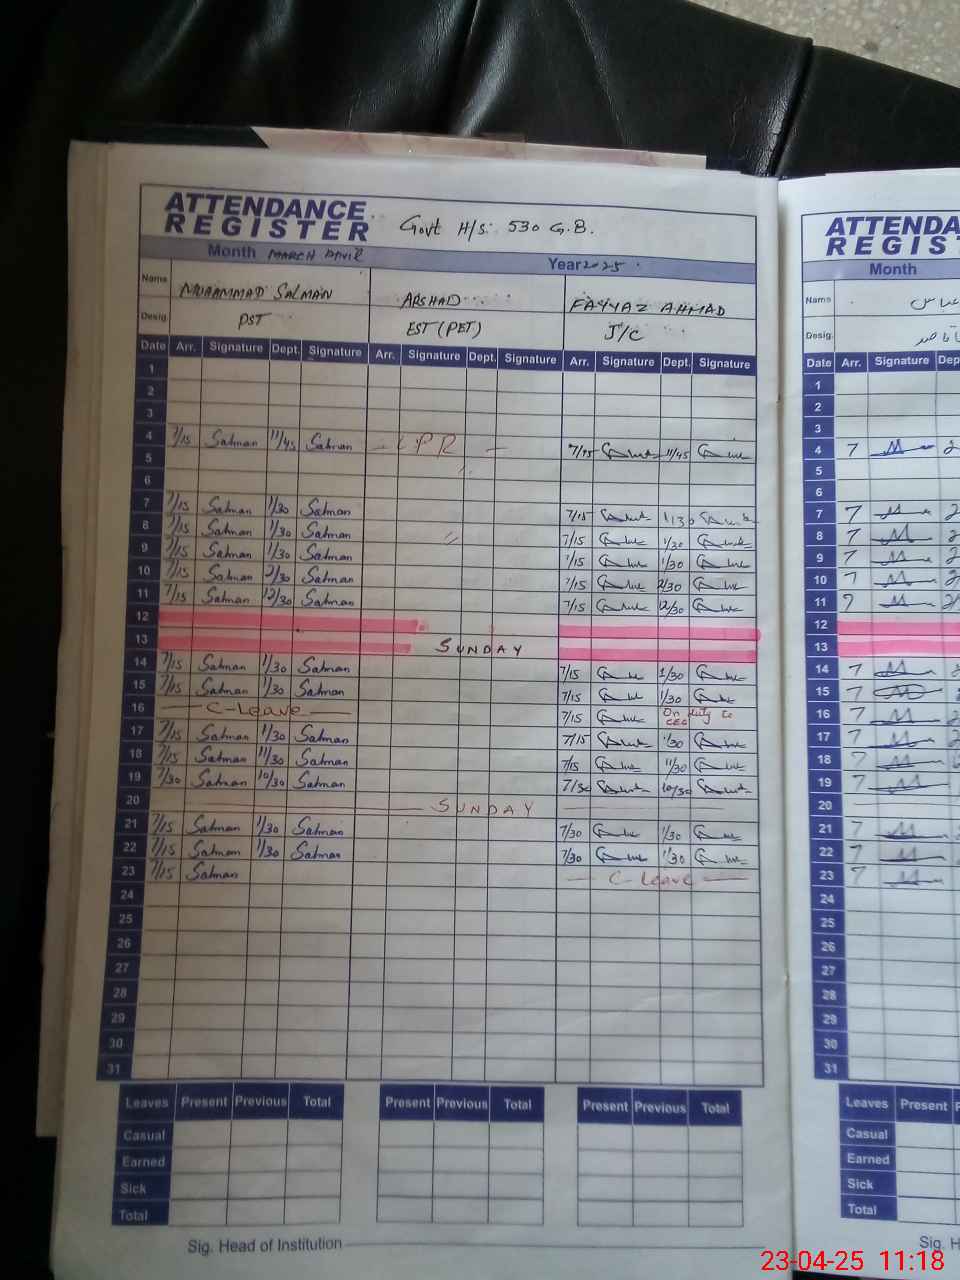 ATTENDANCE
REGISTER
Govt H/S. 530 G.B.
Month MARCH APRIL Year 2025
Name MUHAMMAD SALMAN ARSHAD FAYYAZ AHMAD
Desig. PST EST (PET) J/C
Date Arr. Signature Dept. Signature Arr. Signature Dept. Signature Arr. Signature Dept. Signature
1
2
3
4 7/15 Salman 11/45 Salman LPR 7/15 11/45
5
6
7 7/15 Salman 1/30 Salman 7/15 1/30
8 7/15 Salman 1/30 Salman 7/15 1/30
9 7/15 Salman 1/30 Salman 7/15 1/30
10 7/15 Salman 2/30 Salman 7/15 2/30
11 7/15 Salman 12/30 Salman 7/15 12/30
12
13 SUNDAY
14 7/15 Salman 1/30 Salman 7/15 1/30
15 7/15 Salman 1/30 Salman 7/15 1/30
16 C-Leave 7/15 On duty to CEO
17 7/15 Salman 1/30 Salman 7/15 1/30
18 7/15 Salman 11/30 Salman 7/15 11/30
19 7/30 Salman 10/30 Salman 7/30 10/30
20 SUNDAY
21 7/15 Salman 1/30 Salman 7/30 1/30
22 7/15 Salman 1/30 Salman 7/30 1/30
23 7/15 Salman C-Leave
24
25
26
27
28
29
30
31
Leaves Present Previous Total Present Previous Total Present Previous Total
Casual
Earned
Sick
Total
Sig. Head of Institution
ATTENDANCE
REGIST
Month
Name
Desig.
Date Arr. Signature Dep
1
2
3
4 7 2
5
6
7 7 2
8 7 2
9 7 2
10 7 2
11 7 2
12
13
14 7
15 7
16 7
17 7
18 7
19 7
20
21 7
22 7
23 7
24
25
26
27
28
29
30
31
Leaves Present P
Casual
Earned
Sick
Total
Sig. H
23-04-25 11:18